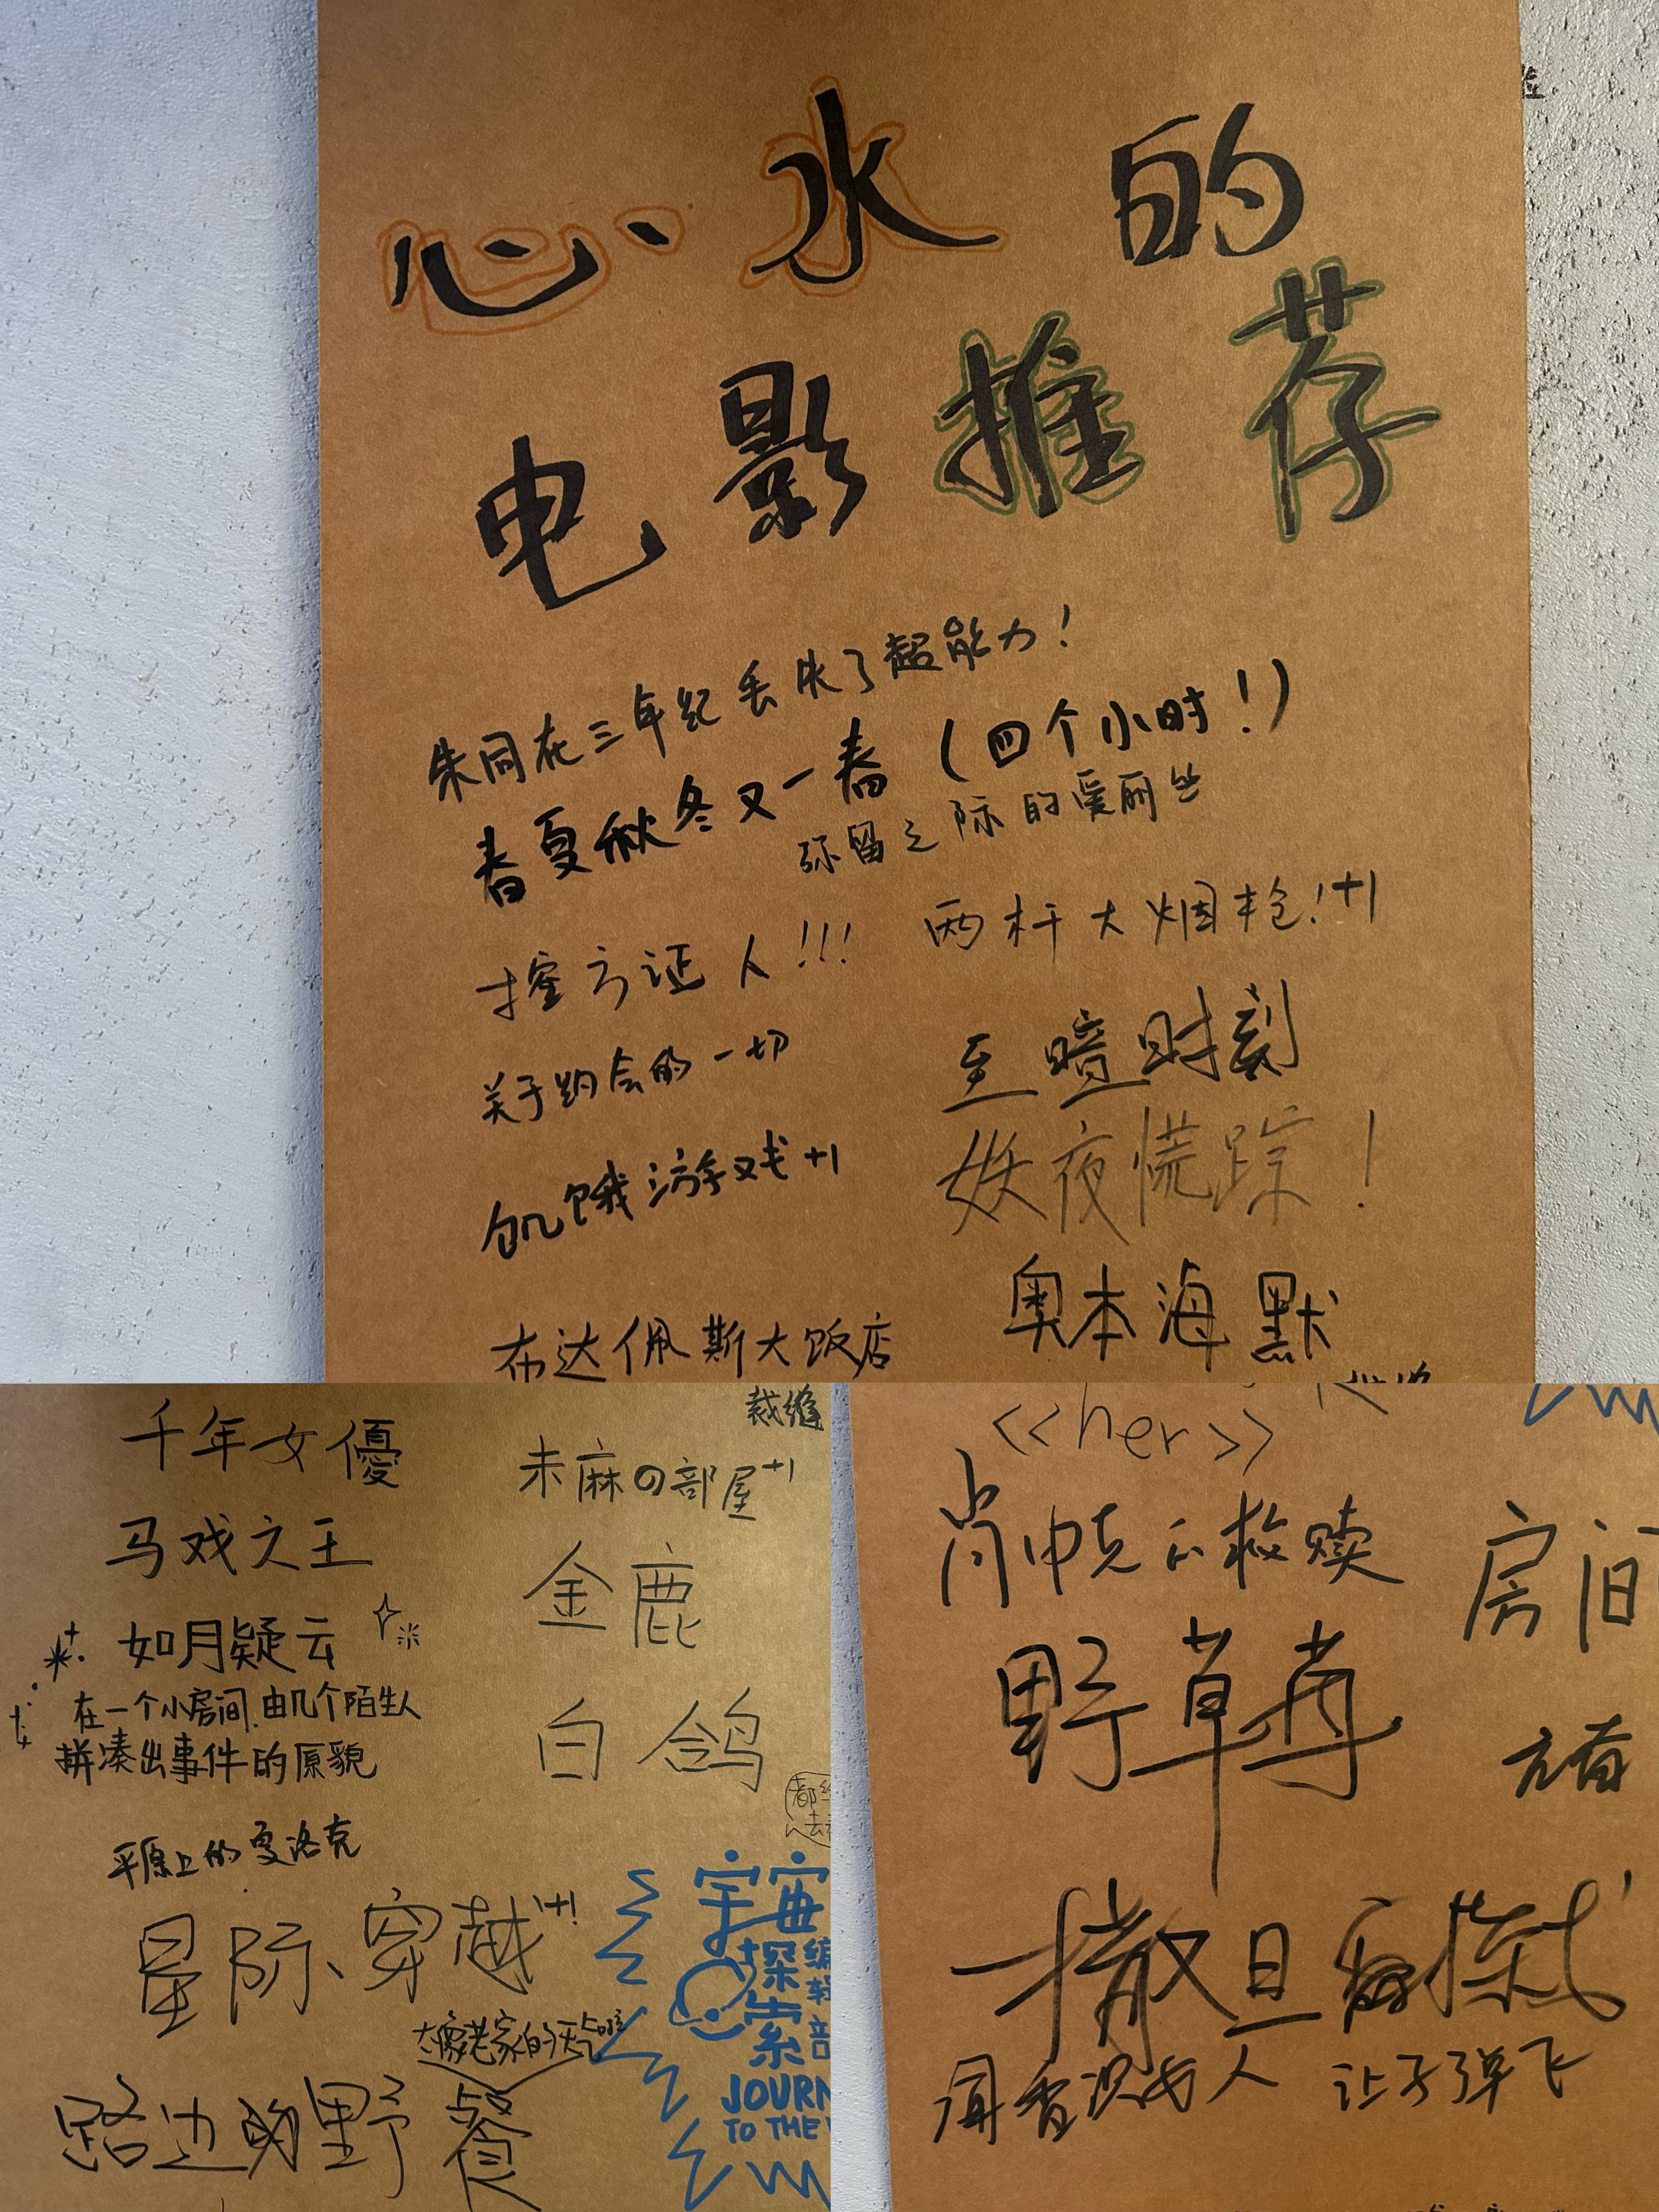 心水的
电影推荐
朱同在三年级丢失了超能力！
春夏秋冬又一春（四个小时！）
弥留之际的爱丽丝
控方证人！！！
两杆大烟枪！+1
关于约会的一切
至暗时刻
饥饿游戏+1
妖夜慌踪！
布达佩斯大饭店
奥本海默
千年女優
裁缝
未麻の部屋+1
马戏之王
金鹿
如月疑云
在一个小房间.由几个陌生人
拼凑出事件的原貌
白鸽
平原上的夏洛克
星际穿越+1!
太像老家的天气
路边的野餐
宇宙
探索
编辑部
JOURN
TO THE
<<her>>
肖申克的救赎
房间
野草莓
撒旦探戈
闻香识女人
让子弹飞